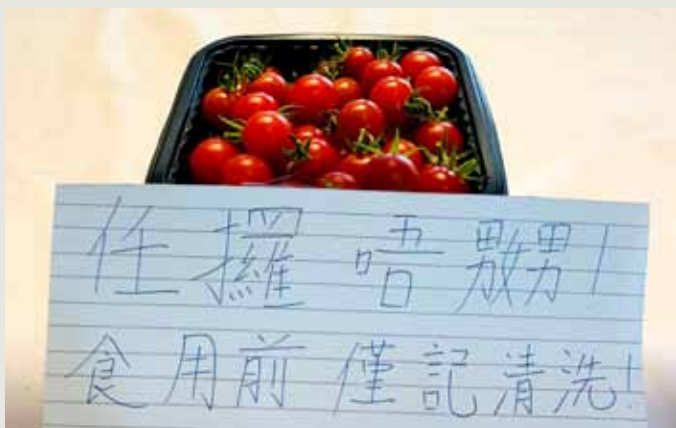 任攞唔嬲!
食用前 僅記清洗!